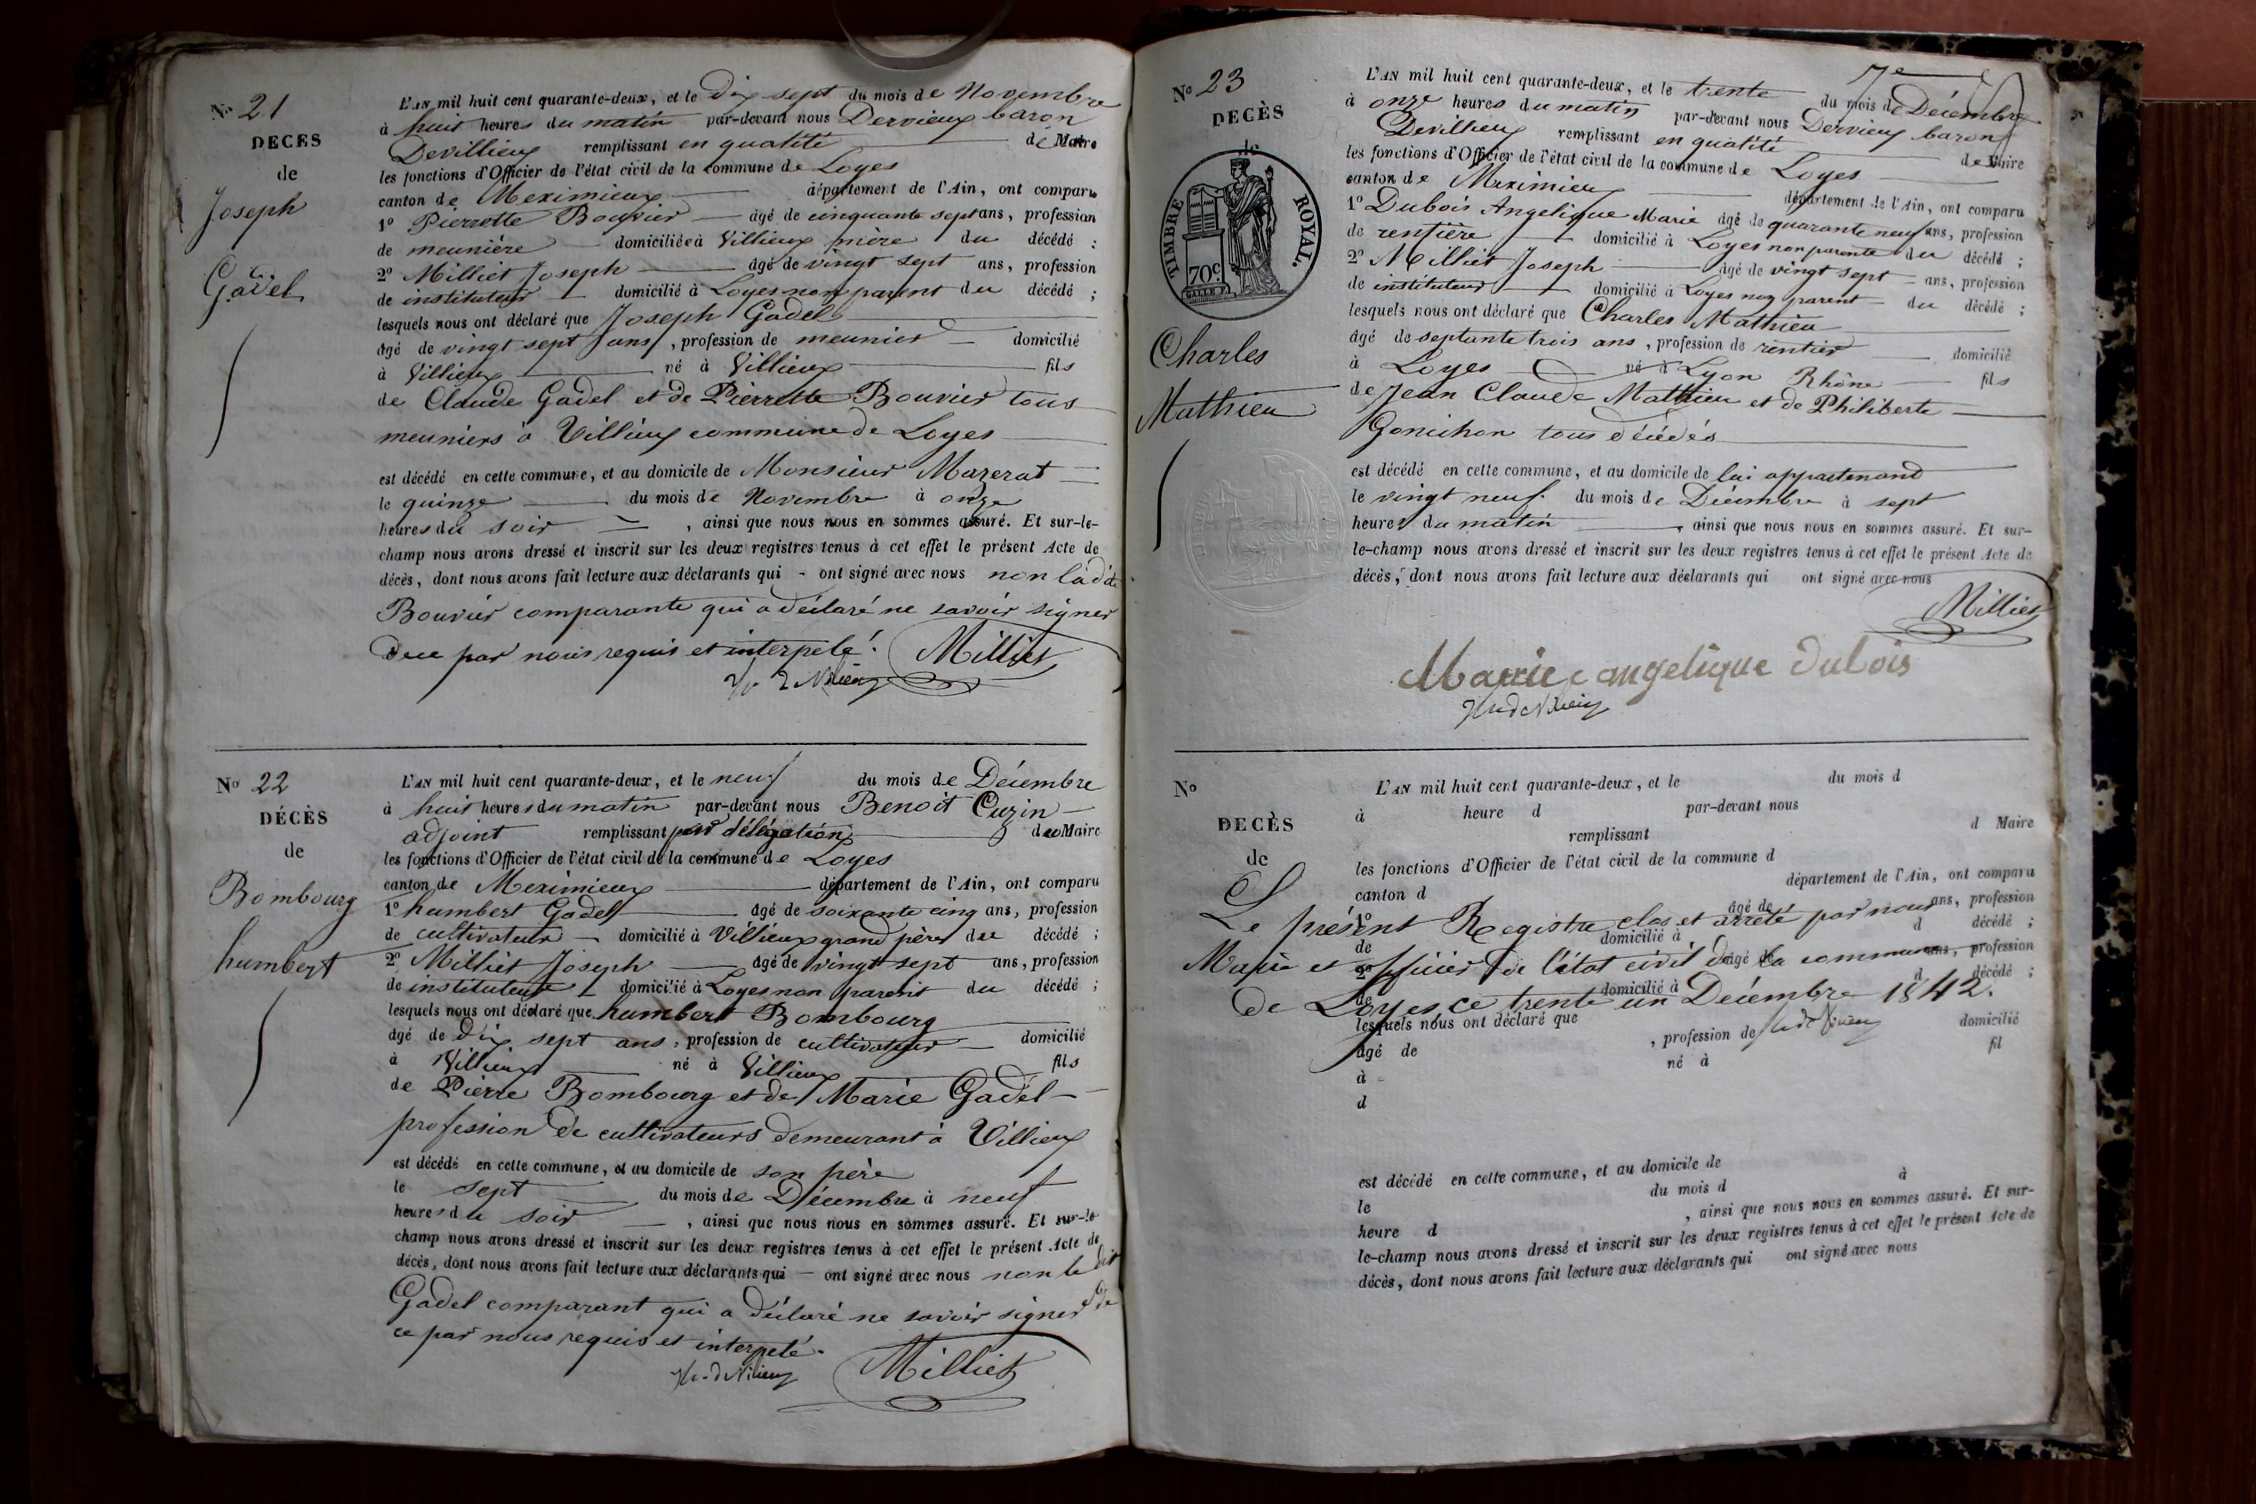 No 21
DECES
de
Joseph
Gadel
L'AN mil huit cent quarante-deux, et le Dix sept du mois de Novembre
à huit heures du matin par-devant nous Dervieux baron
Devillieux remplissant en qualité de Maire
les fonctions d'Officier de l'état civil de la commune de Loyes
canton de Meximieux département de l'Ain, ont comparu
1o Pierrette Bouvier âgé de cinquante sept ans, profession
de meunière domiciliée à Villieux mère du décédé ;
2o Milliet Joseph âgé de vingt sept ans, profession
de instituteur domicilié à Loyes non parent du décédé ;
lesquels nous ont déclaré que Joseph Gadel
âgé de vingt sept ans, profession de meunier domicilié
à Villieux né à Villieux fils
de Claude Gadel et de Pierrette Bouvier tous
meuniers à Villieux commune de Loyes
est décédé en cette commune, et au domicile de Monsieur Mazerat
le quinze du mois de Novembre à onze
heures du soir, ainsi que nous nous en sommes assuré. Et sur-le-
champ nous avons dressé et inscrit sur les deux registres tenus à cet effet le présent Acte de
décès, dont nous avons fait lecture aux déclarants qui - ont signé avec nous non ladite
Bouvier comparante qui a déclaré ne savoir signer
de ce par nous requis et interpelé. Milliet
No 22
DÉCÈS
de
Bombourg
humbert
L'AN mil huit cent quarante-deux, et le neuf du mois de Décembre
à huit heures du matin par-devant nous Benoit Cuzin
adjoint remplissant par délégation du Maire
les fonctions d'Officier de l'état civil de la commune de Loyes
canton de Meximieux département de l'Ain, ont comparu
1o humbert Gadel âgé de soixante cinq ans, profession
de cultivateur domicilié à Villieux grand père du décédé ;
2o Milliet Joseph âgé de vingt sept ans, profession
de instituteur domicilié à Loyes non parent du décédé ;
lesquels nous ont déclaré que humbert Bombourg
âgé de Dix sept ans, profession de cultivateur domicilié
à Villieux né à Villieux fils
de Pierre Bombourg et de Marie Gadel
profession de cultivateurs demeurant à Villieux
est décédé en cette commune, et au domicile de son père
le sept du mois de Décembre à neuf
heures du soir, ainsi que nous nous en sommes assuré. Et sur-le
champ nous avons dressé et inscrit sur les deux registres tenus à cet effet le présent Acte de
décès, dont nous avons fait lecture aux déclarants qui — ont signé avec nous non le dit
Gadel comparant qui a déclaré ne savoir signer de
ce par nous requis et interpelé.
Milliet
No 23
DECÈS
de
TIMBRE ROYAL.
70c
Charles
Mathieu
7e
L'AN mil huit cent quarante-deux, et le trente du mois de Décembre
à onze heures du matin par-devant nous Dervieux baron
Devillieux remplissant en qualité de Maire
les fonctions d'Officier de l'état civil de la commune de Loyes
canton de Meximieux département de l'Ain, ont comparu
1o Dubois Angelique Marie âgé de quarante neuf ans, profession
de rentière domicilié à Loyes non parente du décédé ;
2o Milliet Joseph âgé de vingt sept ans, profession
de instituteur domicilié à Loyes non parent du décédé ;
lesquels nous ont déclaré que Charles Mathieu
âgé de septante trois ans, profession de rentier domicilié
à Loyes né à Lyon Rhône fils
de Jean Claude Mathieu et de Philiberte
Gonichon tous décédés
est décédé en cette commune, et au domicile de lui appartenant
le vingt neuf du mois de Décembre à sept
heures du matin, ainsi que nous nous en sommes assuré. Et sur-
le-champ nous avons dressé et inscrit sur les deux registres tenus à cet effet le présent Acte de
décès, dont nous avons fait lecture aux déclarants qui ont signé avec nous
Milliet
Marie angelique dubois
No
DECÈS
de
L'AN mil huit cent quarante-deux, et le du mois d
à heure d par-devant nous
remplissant d Maire
les fonctions d'Officier de l'état civil de la commune d
canton d département de l'Ain, ont comparu
1o âgé de ans, profession
Le présent Registre clos et arrêté par nous
de domicilié à d décédé ;
2o âgé de ans, profession
Maire et officier de l'état civil de la commune
de domicilié à d décédé ;
de Loyes ce trente un Décembre 1842.
lesquels nous ont déclaré que
âgé de , profession de domicilié
à né à fil
d
est décédé en cette commune, et au domicile de
le du mois d à
heure d , ainsi que nous nous en sommes assuré. Et sur-
le-champ nous avons dressé et inscrit sur les deux registres tenus à cet effet le présent Acte de
décès, dont nous avons fait lecture aux déclarants qui ont signé avec nous